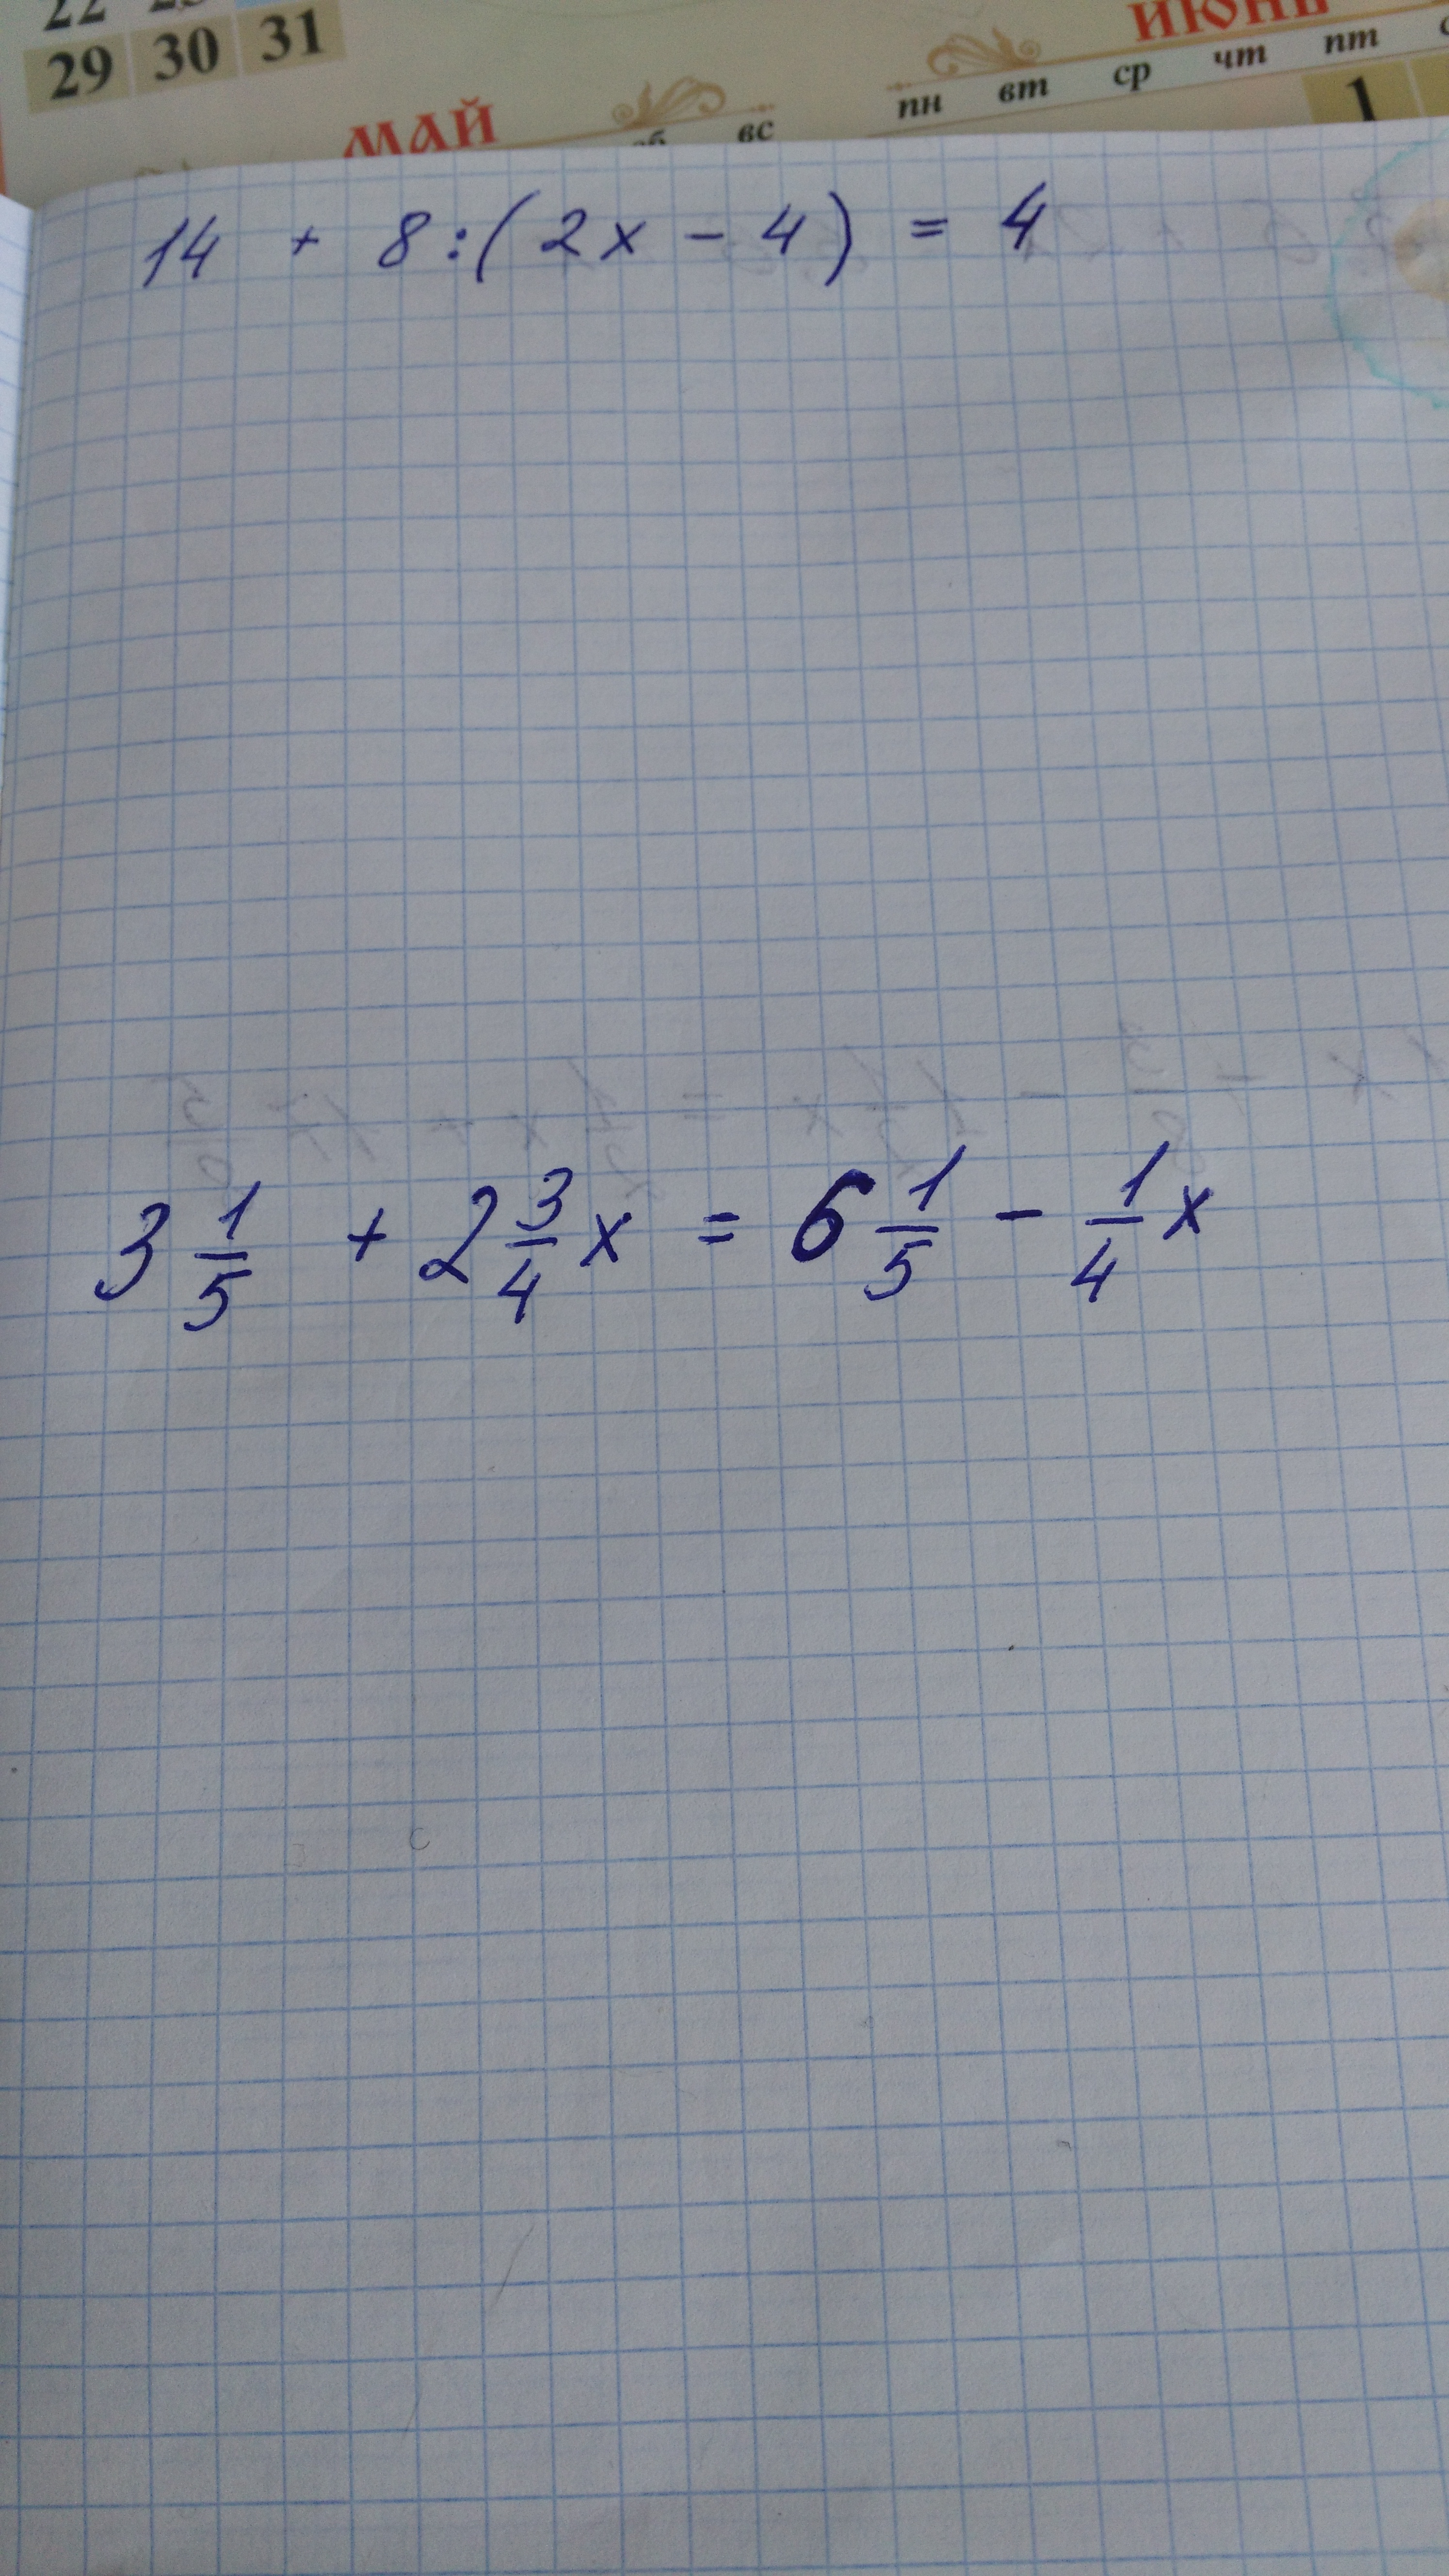 22 23
29 30 31
ИЮНЬ
пн вт ср чт пт
1
МАЙ
сб вс
14 + 8:(2x - 4) = 4
3 1/5 + 2 3/4 x = 6 1/5 - 1/4 x